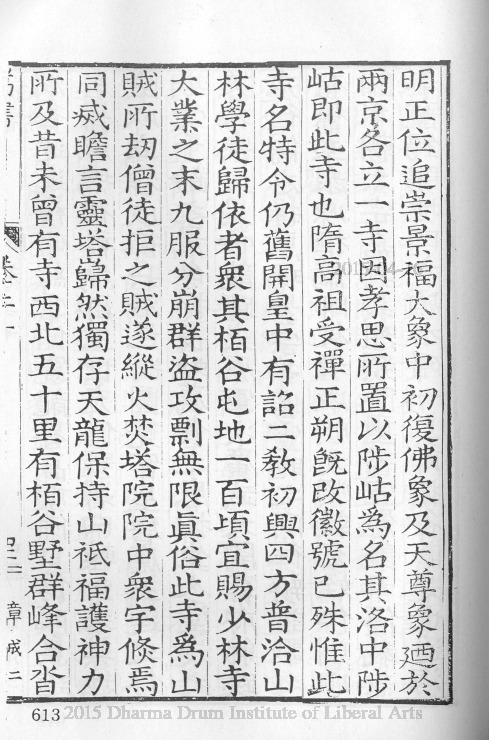 明正位追崇景福大象中初復佛象及天尊象廼於
兩京各立一寺因孝思所置以陟岵為名其洛中陟
岵即此寺也隋高祖受禪正朔既改徽號已殊惟此
寺名特令仍舊開皇中有詔二教初興四方普洽山
林學徒歸依者眾其栢谷屯地一百頃宜賜少林寺
大業之末九服分崩群盜攻剽無限真俗此寺為山
賊所劫僧徒拒之賊遂縱火焚塔院院中衆宇倏焉
同滅瞻言靈塔巋然獨存天龍保持山祇福護神力
所及昔未曾有寺西北五十里有栢谷墅群峰合沓
章成二
613 2015 Dharma Drum Institute of Liberal Arts